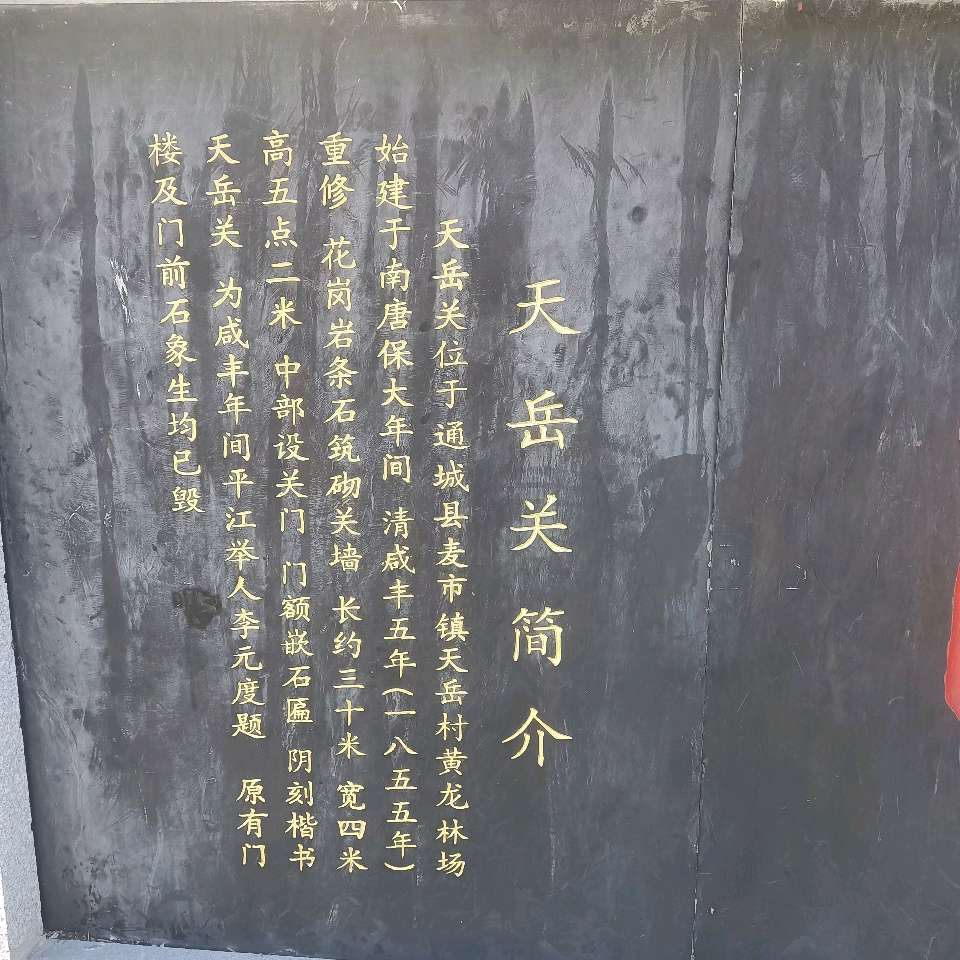 天岳关简介
天岳关位于通城县麦市镇天岳村黄龙林场
始建于南唐保大年间 清咸丰五年(一八五五年)
重修 花岗岩条石筑砌关墙 长约三十米 宽四米
高五点二米 中部设关门 门额嵌石匾 阴刻楷书
天岳关 为咸丰年间平江举人李元度题 原有门
楼及门前石象生均已毁